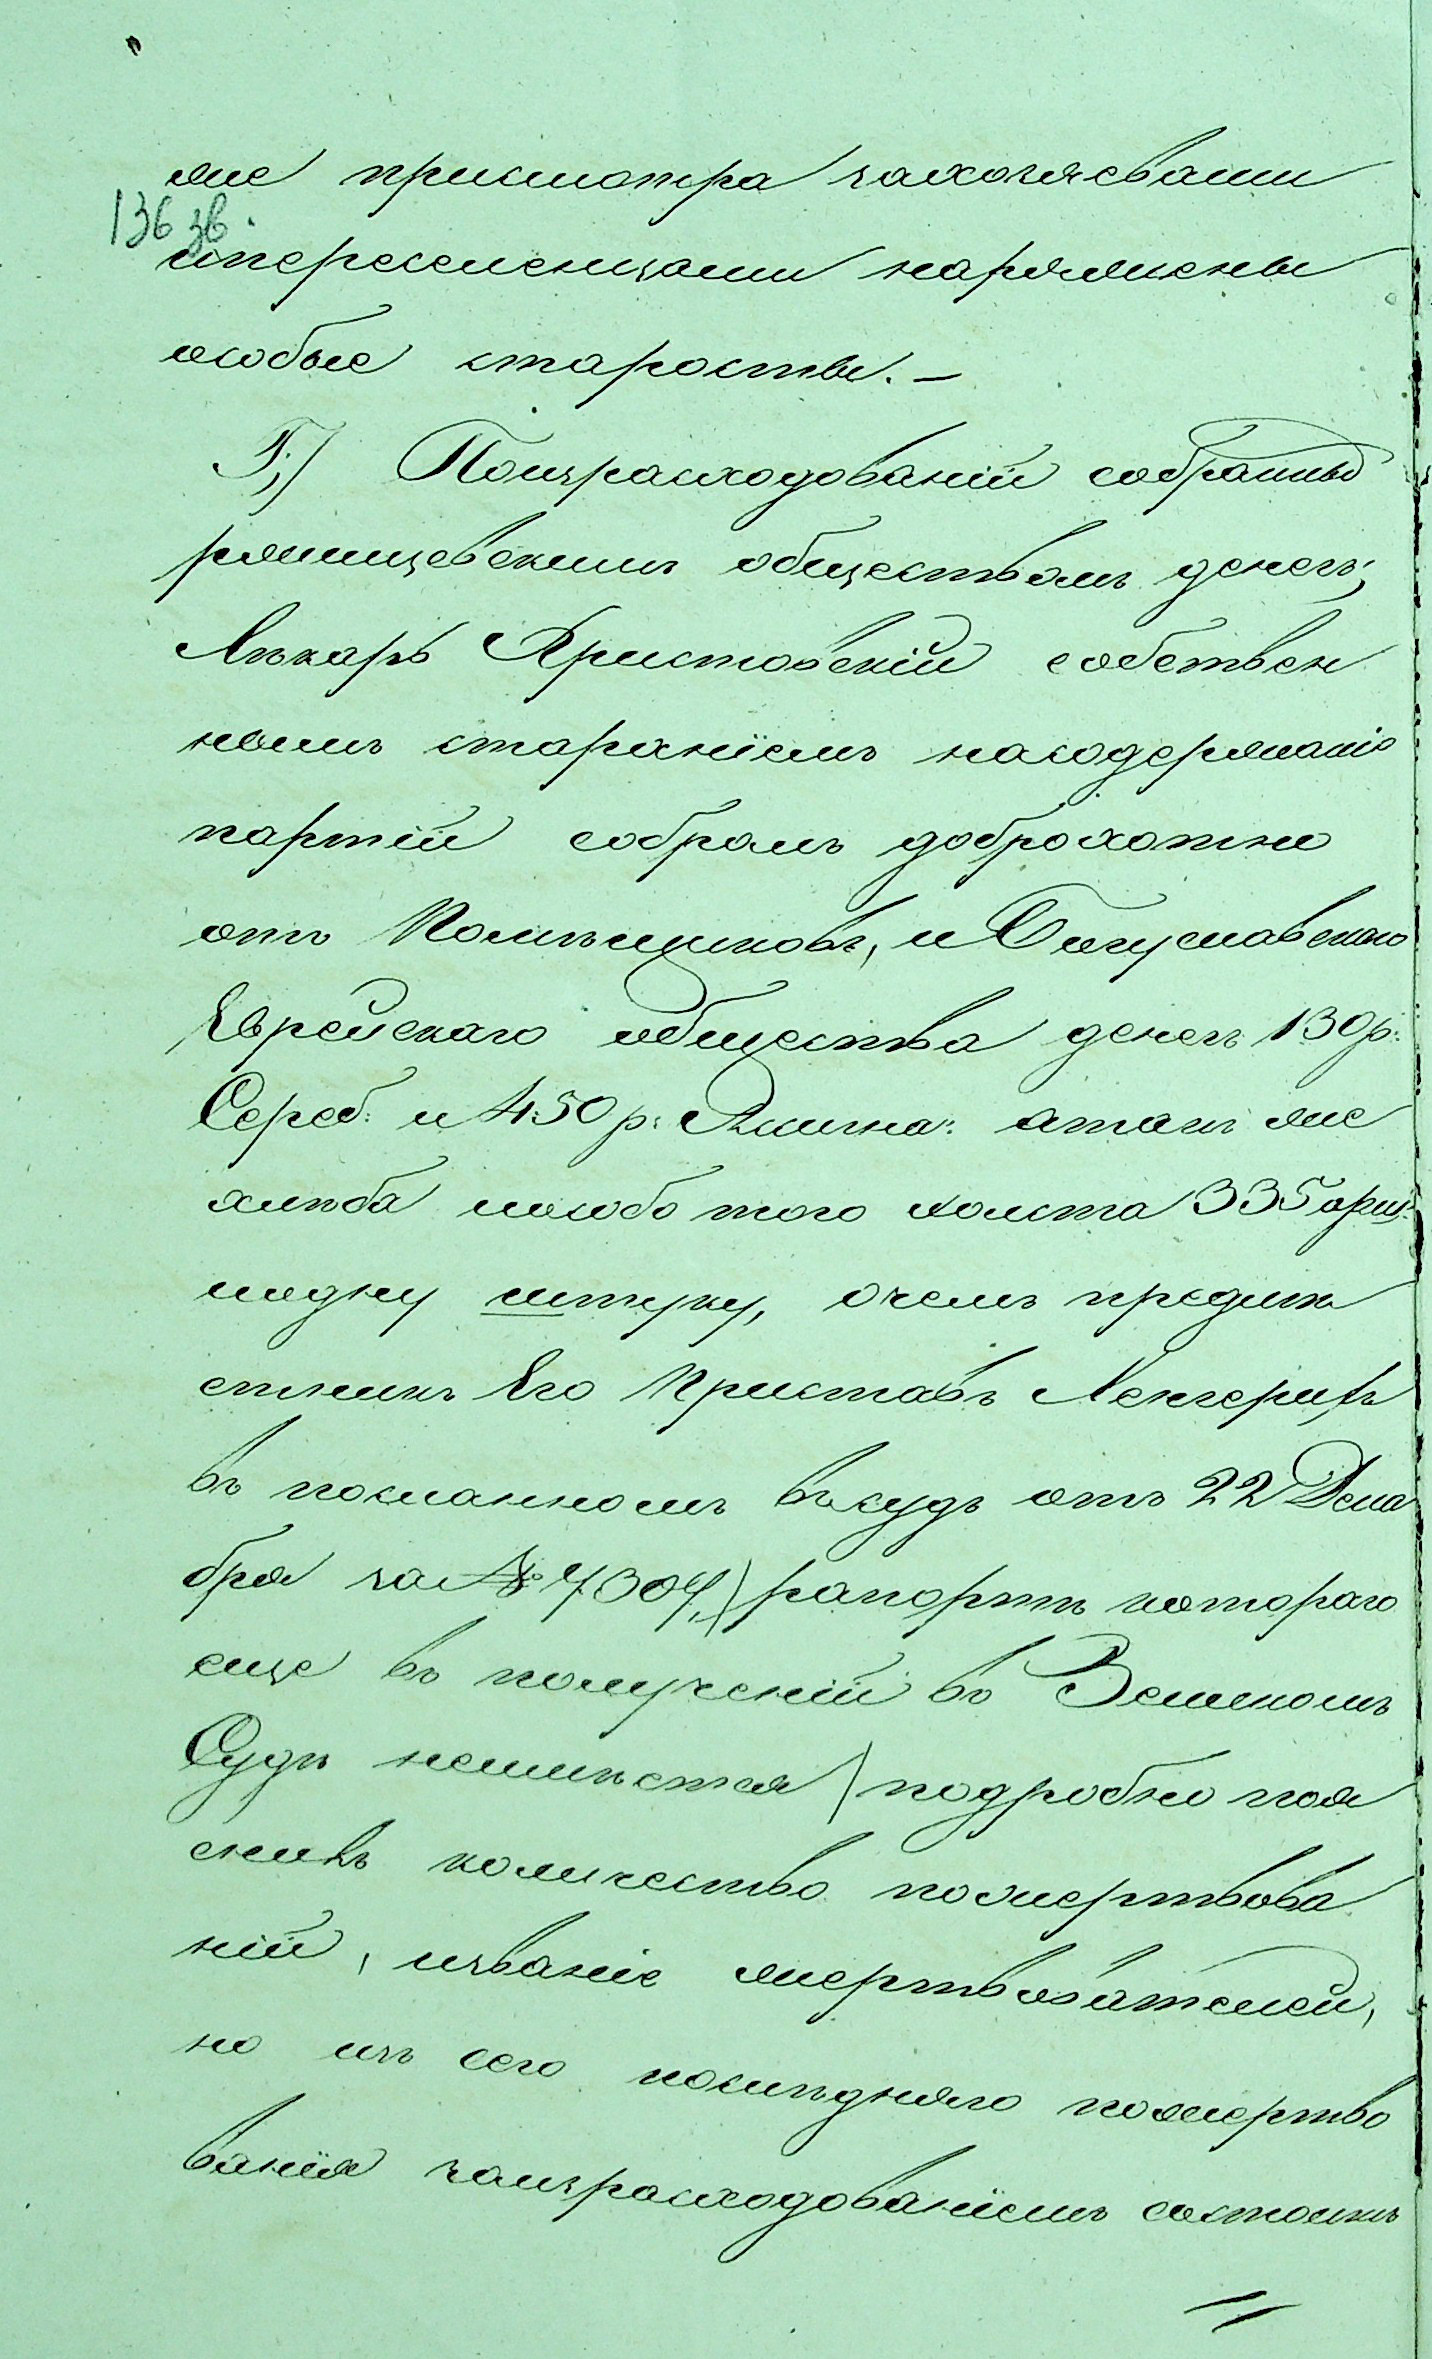 же присмотра за хозяевами
136 зв.
и переселенцами наряжены
особые старосты. —
Г,) По израсходованіи собранныхъ
ржищевскимъ обществомъ денегъ;
Лѣкарь Христовскій собствен
нымъ стараніемъ на содержаніе
партіи собралъ доброхотно
отъ Помѣщиковъ, и Богуславскаго
Еврейскаго общества денегъ 130 р:
Сереб: и 450 р: Ассигна: а такъ же
хлѣба и особо того холста 335 арш:
и одну штуку, о чемъ предмѣ
стникъ Его Приставъ
въ посланномъ въ судъ отъ 22 Дека
бря за № 7304,) рапортъ котораго
еще въ полученіи въ Земскомъ
Судѣ неимѣется) подробно поя
снивъ количество пожертвова
ній, и званіе жертвователей,
но изъ сего послѣдняго пожертво
ванія за израсходованіемъ состоитъ